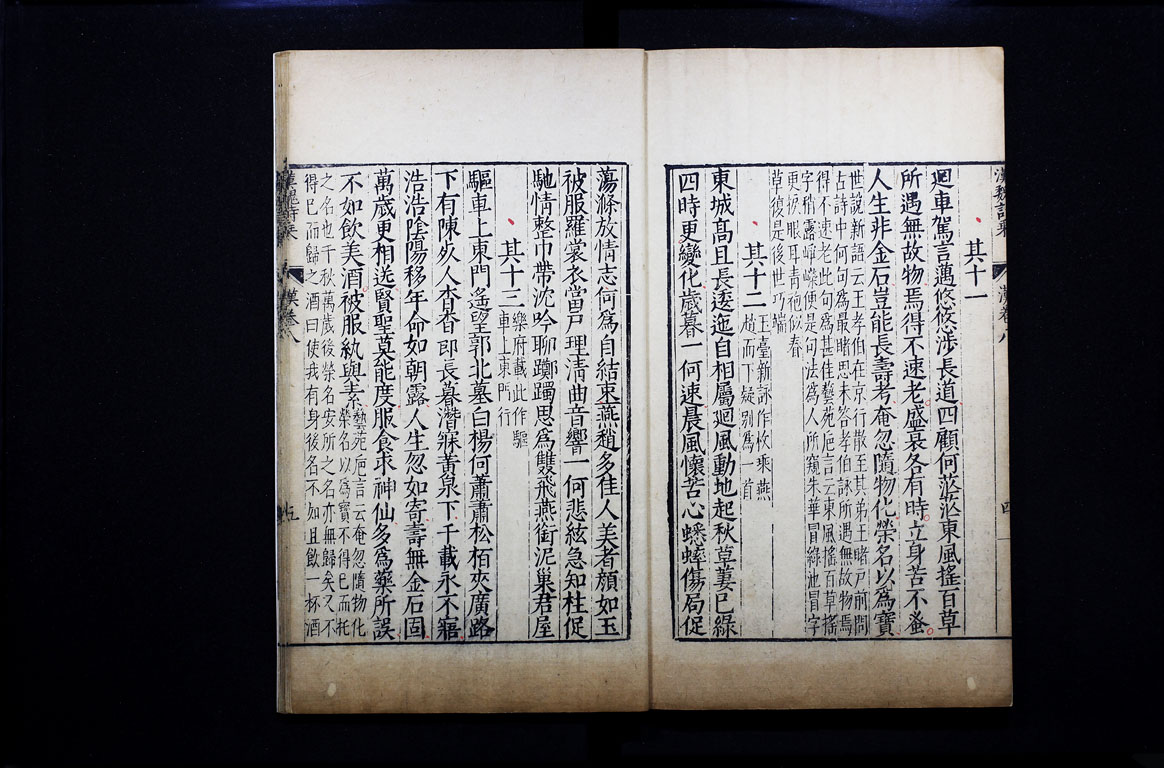 漢魏詩乘 漢卷八 四
其十一
迴車駕言邁悠悠涉長道四顧何茫茫東風搖百草
所遇無故物焉得不速老盛衰各有時立身苦不蚤
人生非金石豈能長壽考奄忽隨物化榮名以為寶
世說新語云王孝伯在京行散至其弟王睹戶前問
古詩中何句為最睹思未答孝伯詠所遇無故物焉
得不速老此句為甚佳藝苑巵言云東風搖百草搖
字稍露崢嶸便是句法為人所窺朱華冒綠池冒字
更捩眼耳青袍似春
草復是後世巧端
其十二
玉臺新詠作枚乘燕
趙而下疑別為一首
東城髙且長逶迤自相屬廻風動地起秋草萋已綠
四時更變化歲暮一何速晨風懷苦心蟋蟀傷局促
蕩滌放情志何為自結束燕趙多佳人美者顏如玉
被服羅裳衣當戶理清曲音響一何悲絃急知柱促
馳情整巾帶沈吟聊躑躅思為雙飛燕銜泥巢君屋
其十三
樂府載此作驅
車上東門行
驅車上東門遙望郭北墓白楊何蕭蕭松栢夾廣路
下有陳死人杳杳即長暮潛寐黃泉下千載永不寤
浩浩陰陽移年命如朝露人生忽如寄壽無金石固
萬歲更相送賢聖莫能度服食求神仙多為藥所誤
不如飲美酒被服紈與素
藝苑巵言云奄忽隨物化
榮名以為寶不得已而托
之名也千秋萬歲後榮名安所之名亦無歸矣又不
得已而歸之酒曰使我有身後名不如且飲一杯酒
漢魏詩乘 漢卷八 五